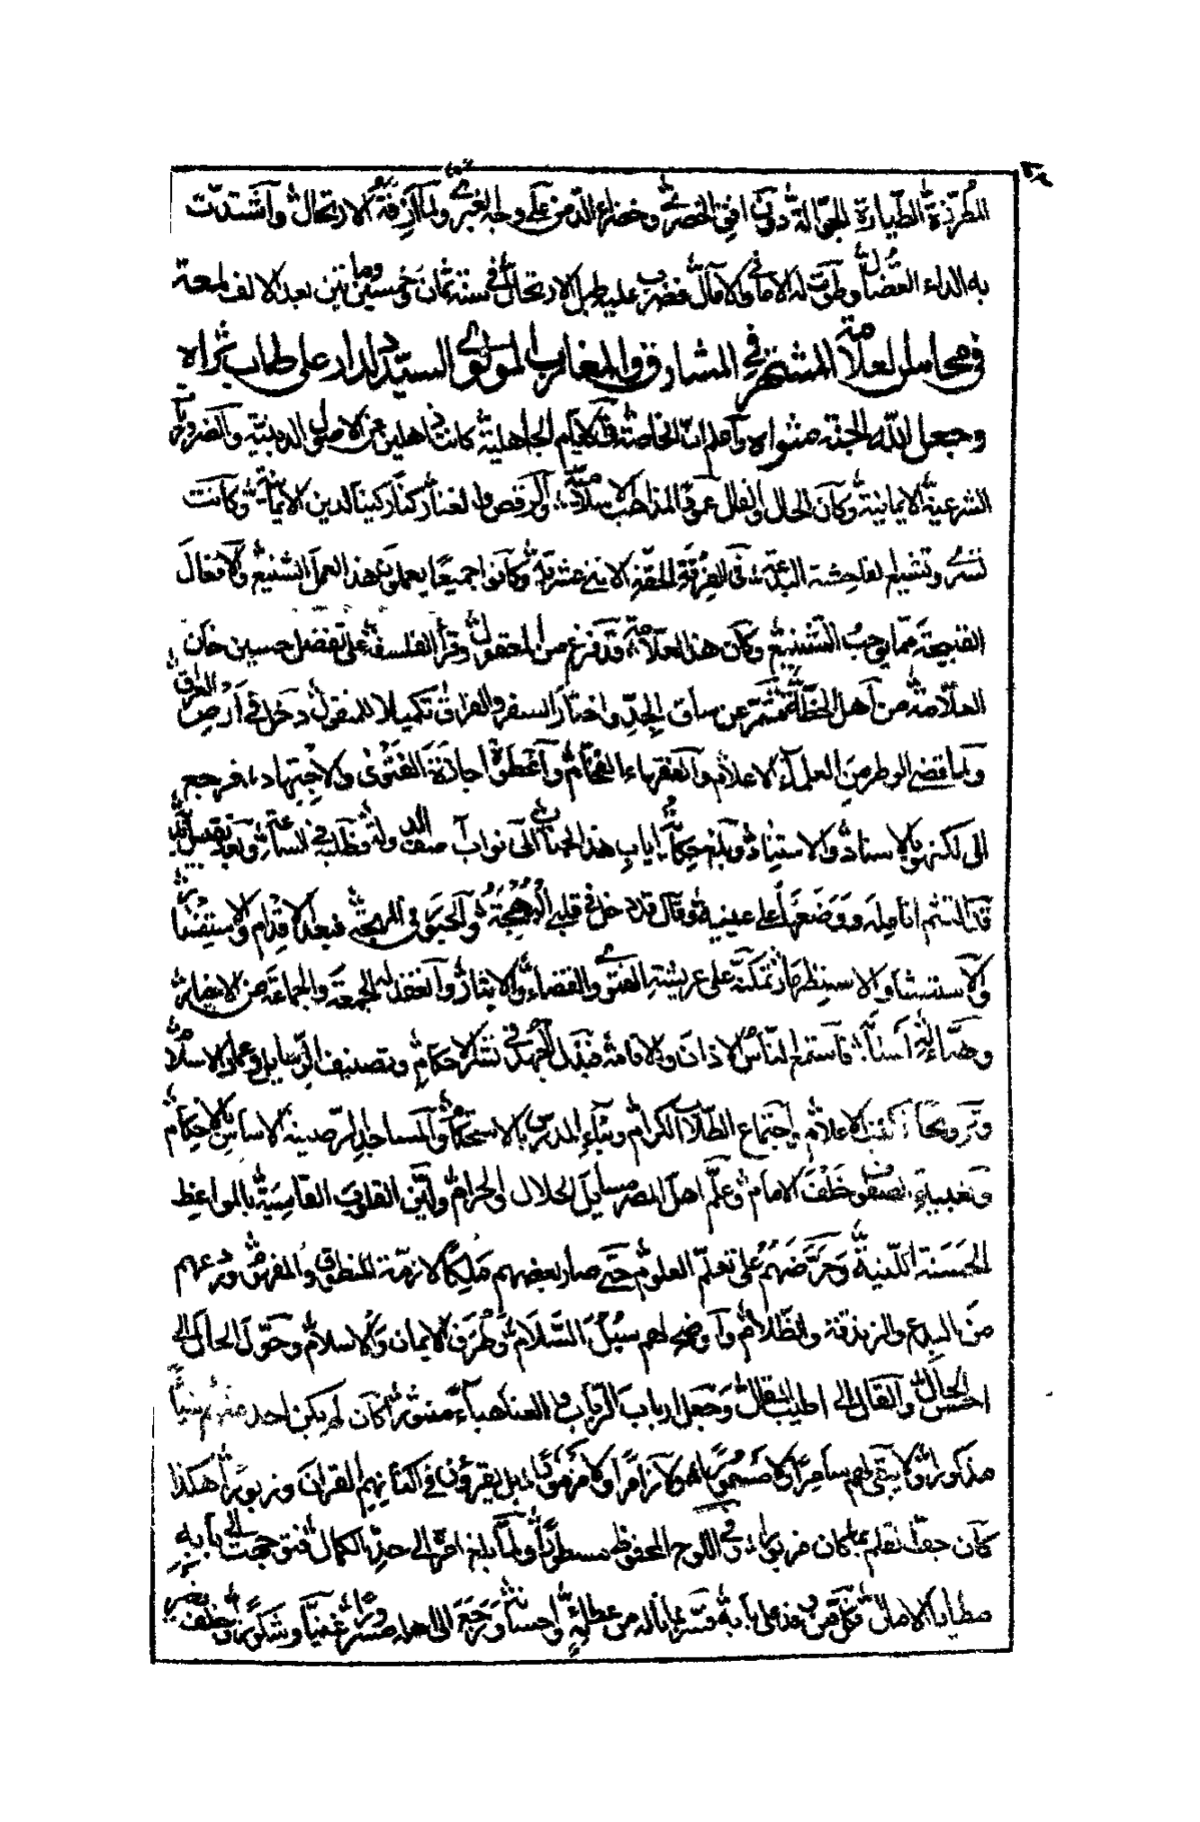 المطرزة الطيارة الجوالة دون افق الخضراء وخضراء الدمن على وجه الغبراء ولما ازفة الارتحال واشتدت
به الداء العضال وطوت له الاماني والآمال فضرب عليه طبل الارتحال في سنة ثمان وخمسين ومائتين بعد الالف لمعة
في محامد العلامة المشتهر في المشارق والمغارب المولوي السيد دلدار علي طاب ثراه
وجعل الله الجنة مثواه واعلم ان الخاصة في الايام الجاهلية كانت ذاهلين عن الاصول الدينية والضرورية
الشرعية الايمانية وكان الحال والقال عم في المذاهب الاسلامية والرقص والغناء ركنا ركينا لدين الايمانية وكانت
تسرى وتشيع الفاحشة البدعة في الفرقة المحقة الاثني عشرية وكانوا جميعا يعملون هذا العمل الشنيع والافعال
القبيحة مما يوجب التشنيع وكان هذا العلامة قد فرغ من المعقول وقرأ الفلسفة على تفضل حسين خان
العلامة من اهل الخطة شمر عن ساق الجد واختار السفر والفراق تكميلا للمنقول دخل في ارض العراق
ولما قضى الوطر من العلماء الاعلام والفقهاء الفخام واعطوه اجازة الفتوى والاجتهاد فرجع
الى لكهنو بالاسناد والاستناد وبلغ حكاية اياب هذا الجناب الى نواب آصف الدولة فطلبه في الساعة وبعد تقبيل
فالتثم انامله ووضعها على عينيه وقال قد دخل في قلبي البهجة والحبور في المهجة فبعد الاقدام والاستفسار
والاستبشار والاستظهار تمكنه على عريشة الفتوى والقضاء والايثار وانعقد له الجمعة والجماعة من الانصار
وهناء له اسنا فاستمع الناس الاذان والاقامة فبذل الجهد في نشر الاحكام وتصنيف الرسايل وعلو الاسلام
وترويج كتب الاعلام واجتماع الطلاب الكرام وبناء المدارس بالاستحكام والمساجد الرصينة الاساس بالاحكام
وتعبية الصفوف خلف الامام وعلم اهل المصر مسايل الحلال والحرام والين القلوب القاسية بالمواعظ
الحسنة اللينة وحرضهم على تعلم العلوم حتى صار بعضهم ملكا لازمة المنطوق والمفهوم وردعهم
من البدع والزندقة والظلام واوضح لهم سبل السلام وطرق الايمان والاسلام وحول الحال الى
احسن الحال والقال الى اطيب المقال وجعل ارباب الرباب والغناء هباء منثورا كان لم يكن احد منهم شيئا
مذكورا ولا يبقى لهم سامرا ولا مسمورا ولا زامرا ولا مزمورا بل يقرؤن في كتابهم القران وزبورا هكذا
كان جف القلم بما كان مزبورا وفي اللوح المحفوظ مسطورا ولما بلغ امره الى حد الكمال فتوجهت الى بابه
مطايا الامال فكل من وفد على بابه فسر بما ناله من عطائه واحسانه ورجع الى اهله مسرورا غنيا وشكورا